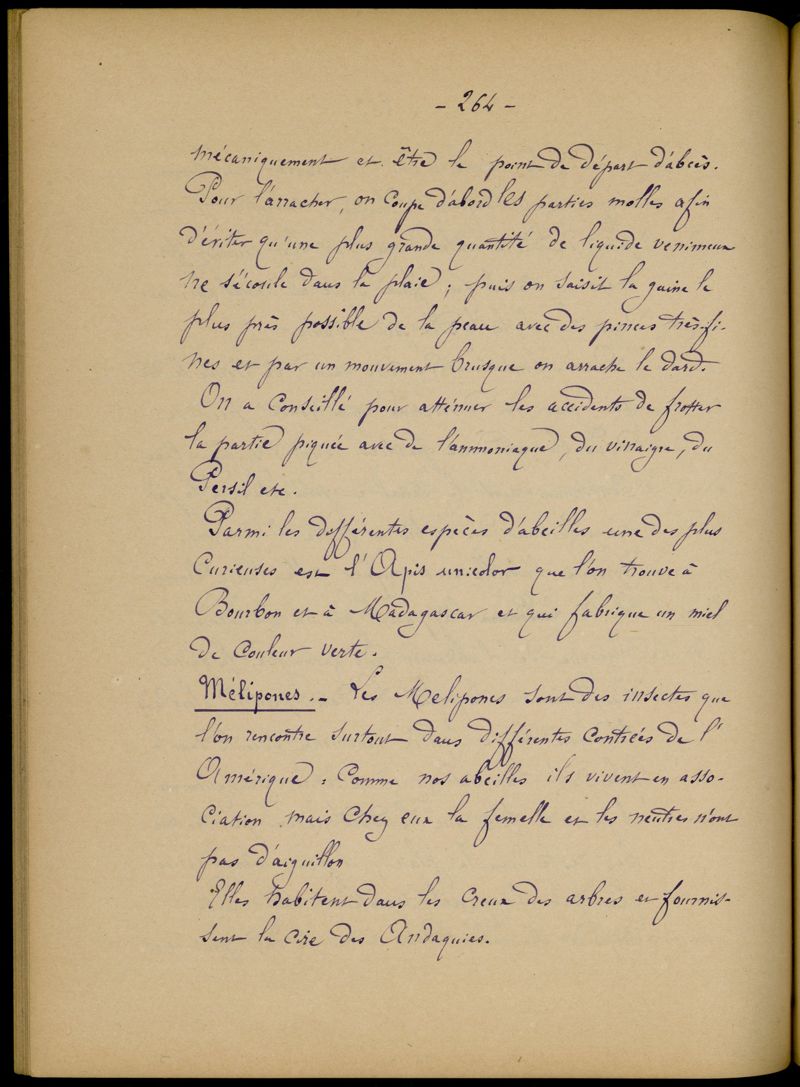 - 264 -
mécaniquement et être le point de départ d'abcès.
Pour l'arracher, on coupe d'abord les parties molles afin
d'éviter qu'une plus grande quantité de liquide venimeux
ne s'écoule dans la plaie ; puis on saisit la gaine le
plus près possible de la peau avec des pinces très fi-
nes et par un mouvement brusque on arrache le dard.
On a conseillé pour atténuer les accidents de frotter
la partie piquée avec de l'ammoniaque, du vinaigre, du
Persil etc.
Parmi les différentes espèces d'abeilles une des plus
Curieuses est l'Apis unicolor que l'on trouve à
Bourbon et à Madagascar et qui fabrique un miel
de Couleur verte.
Mélipones. - Les Melipones sont des insectes que
l'on rencontre surtout dans différentes contrées de l'
Amérique : Comme nos abeilles ils vivent en asso-
ciation mais chez eux la femelle et les neutres n'ont
pas d'aiguillon
Elles habitent dans les creux des arbres et fournis-
sent la cire des Andaquies.